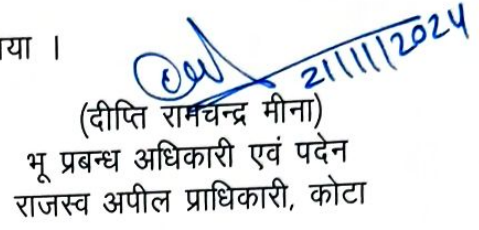 या ।
21/11/2024
(दीप्ति रामचन्द्र मीना)
भू प्रबन्ध अधिकारी एवं पदेन
राजस्व अपील प्राधिकारी, कोटा